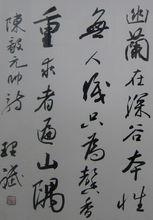 幽兰在深谷本性
無人識只為馨香
重求者遍山隅
陳毅元帥詩